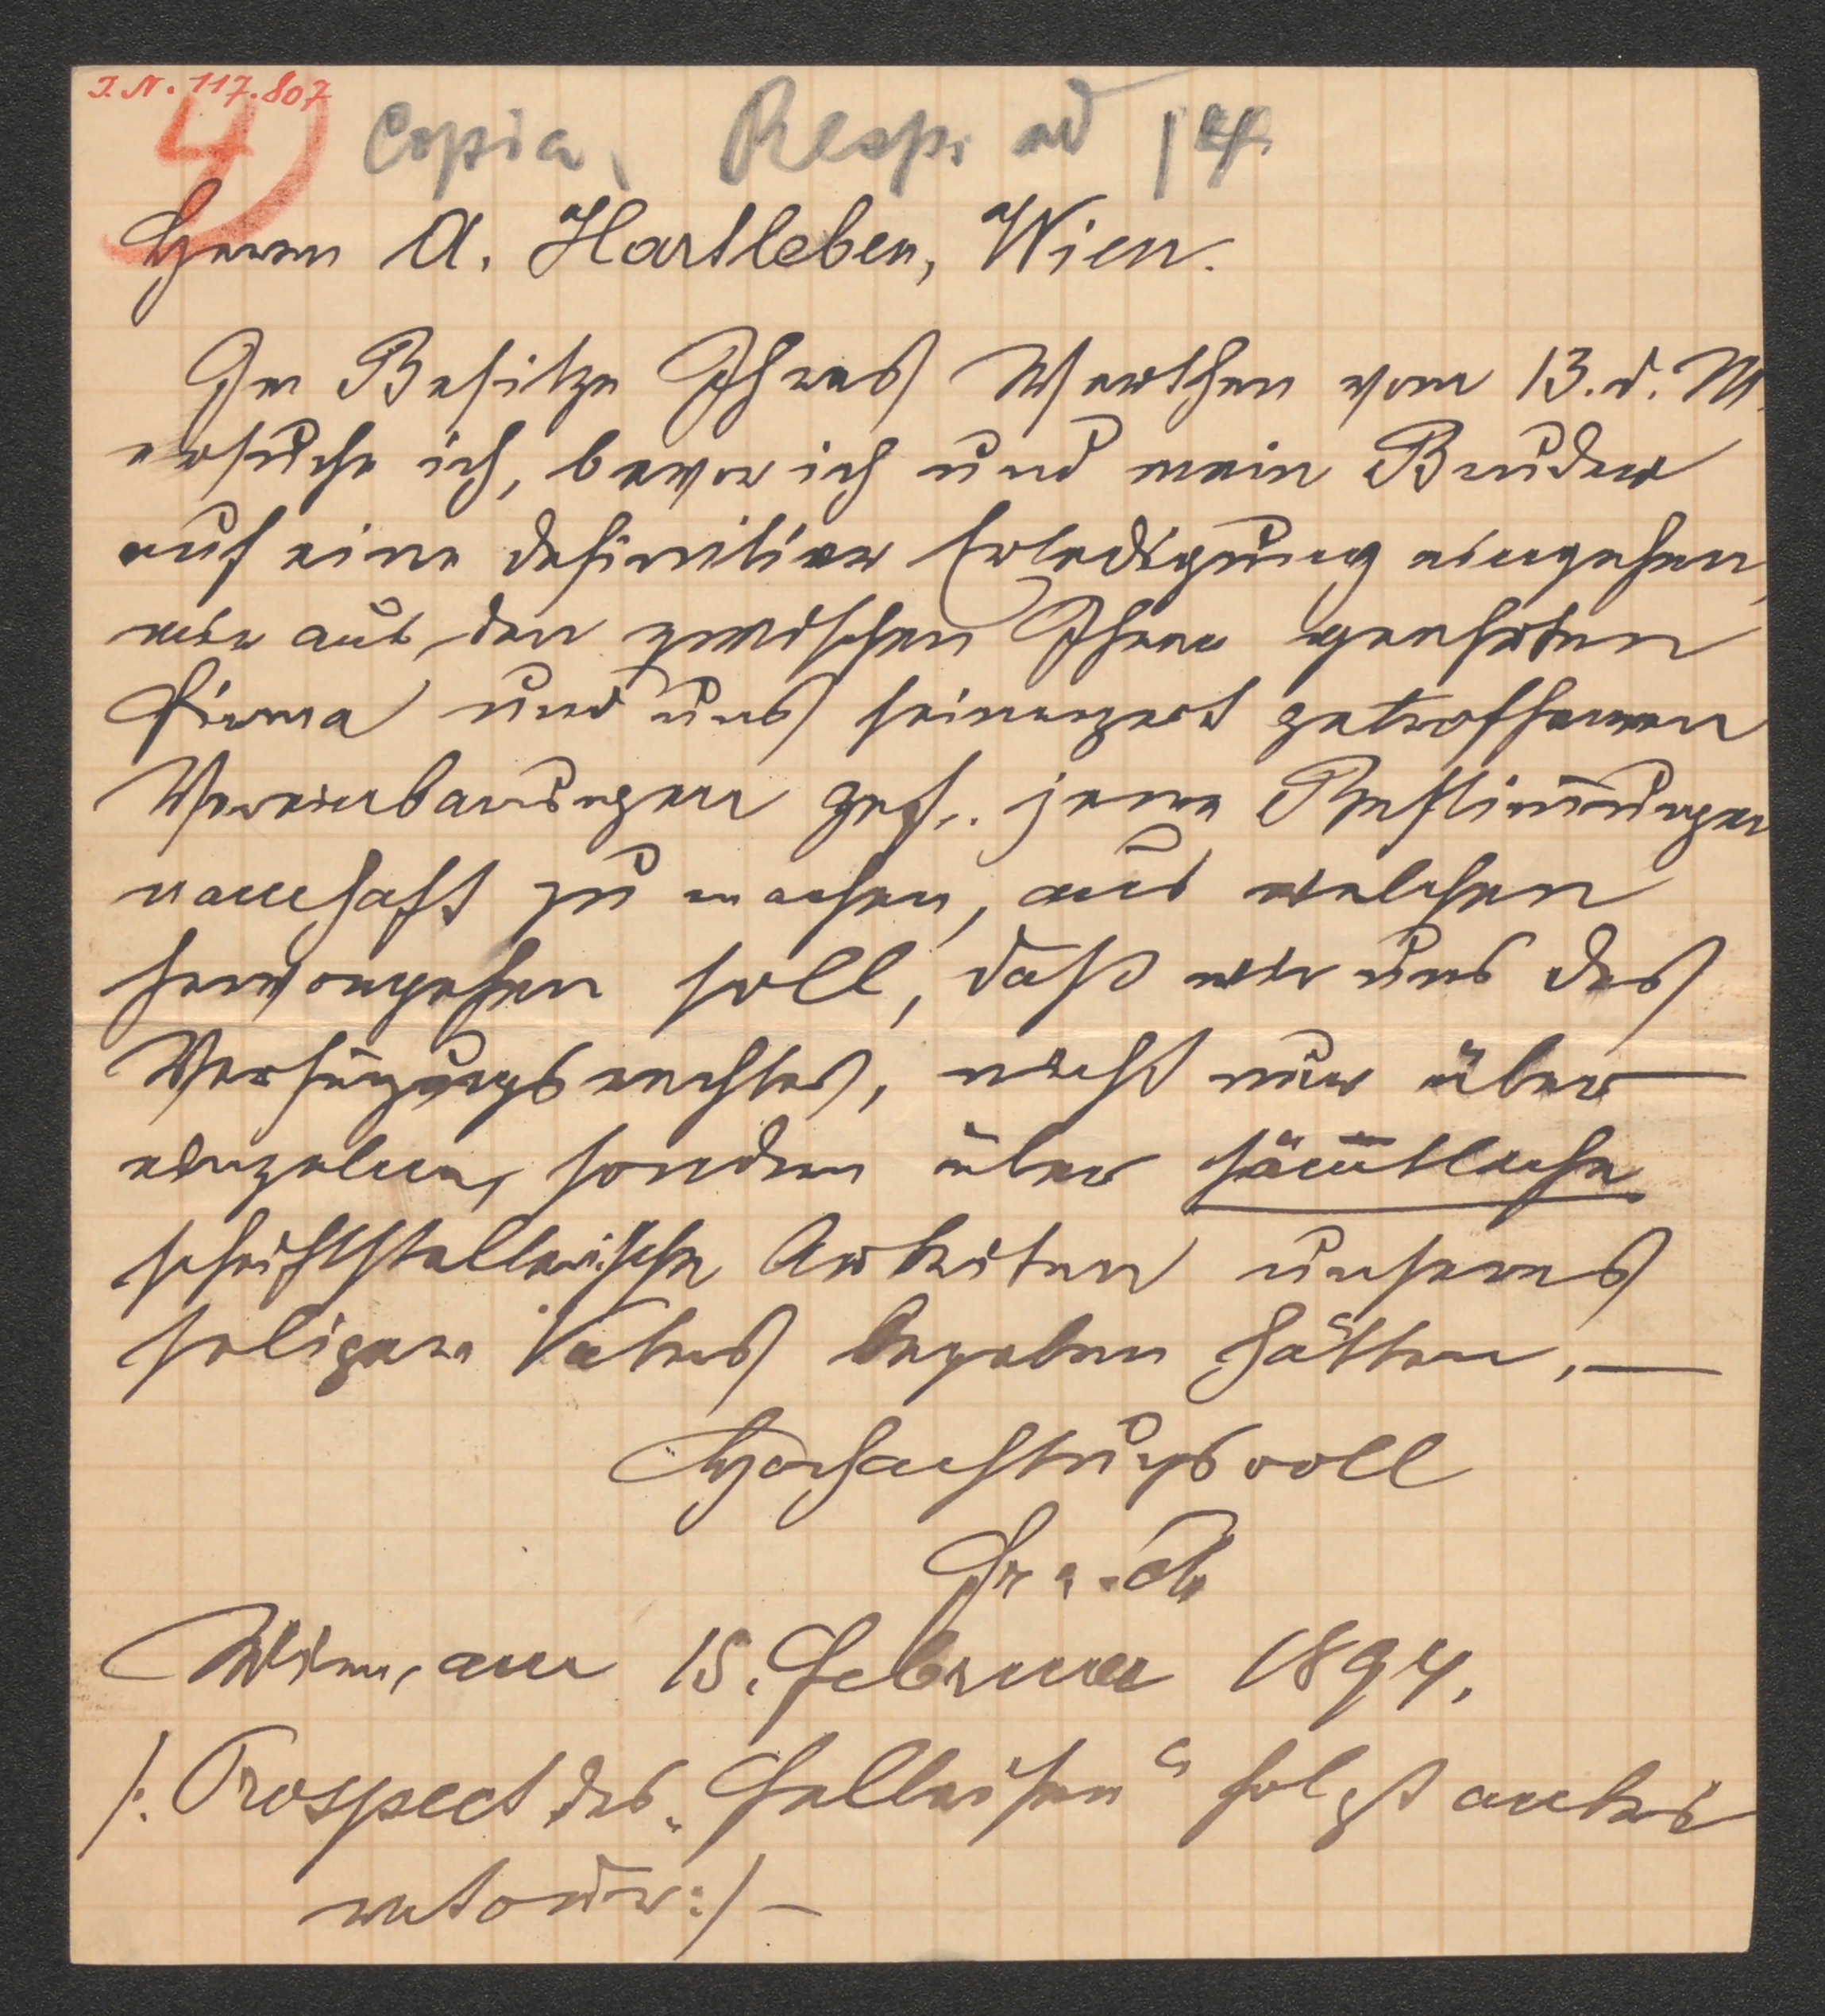 I. N. 117.807
4)
Copia. Resp. ad
Herrn A. Hartleben, Wien.
Im Besitze Ihres Werthen vom 13. d. M.
ersuche ich, bevor ich und mein Bruder
auf eine definitive Erledigung eingehen,
mir aus den zwischen Ihrer geehrten
Firma und uns seinerzeit getroffenen
Vereinbarungen gef. jene Bestim̅ungen
namhaft zu machen, aus welchen
hervorgehen soll, daß wir uns des
Verfügungsrechtes, nicht nur über
einzelne, sondern über säm̅tliche
schriftstellerische Arbeiten unseres
seligen Vaters begeben hätten. —
Hochachtungsvoll
Wien, am 15. Februar 1894.
/: Prospect des „Felleisen“ folgt anbei
retour :/ —